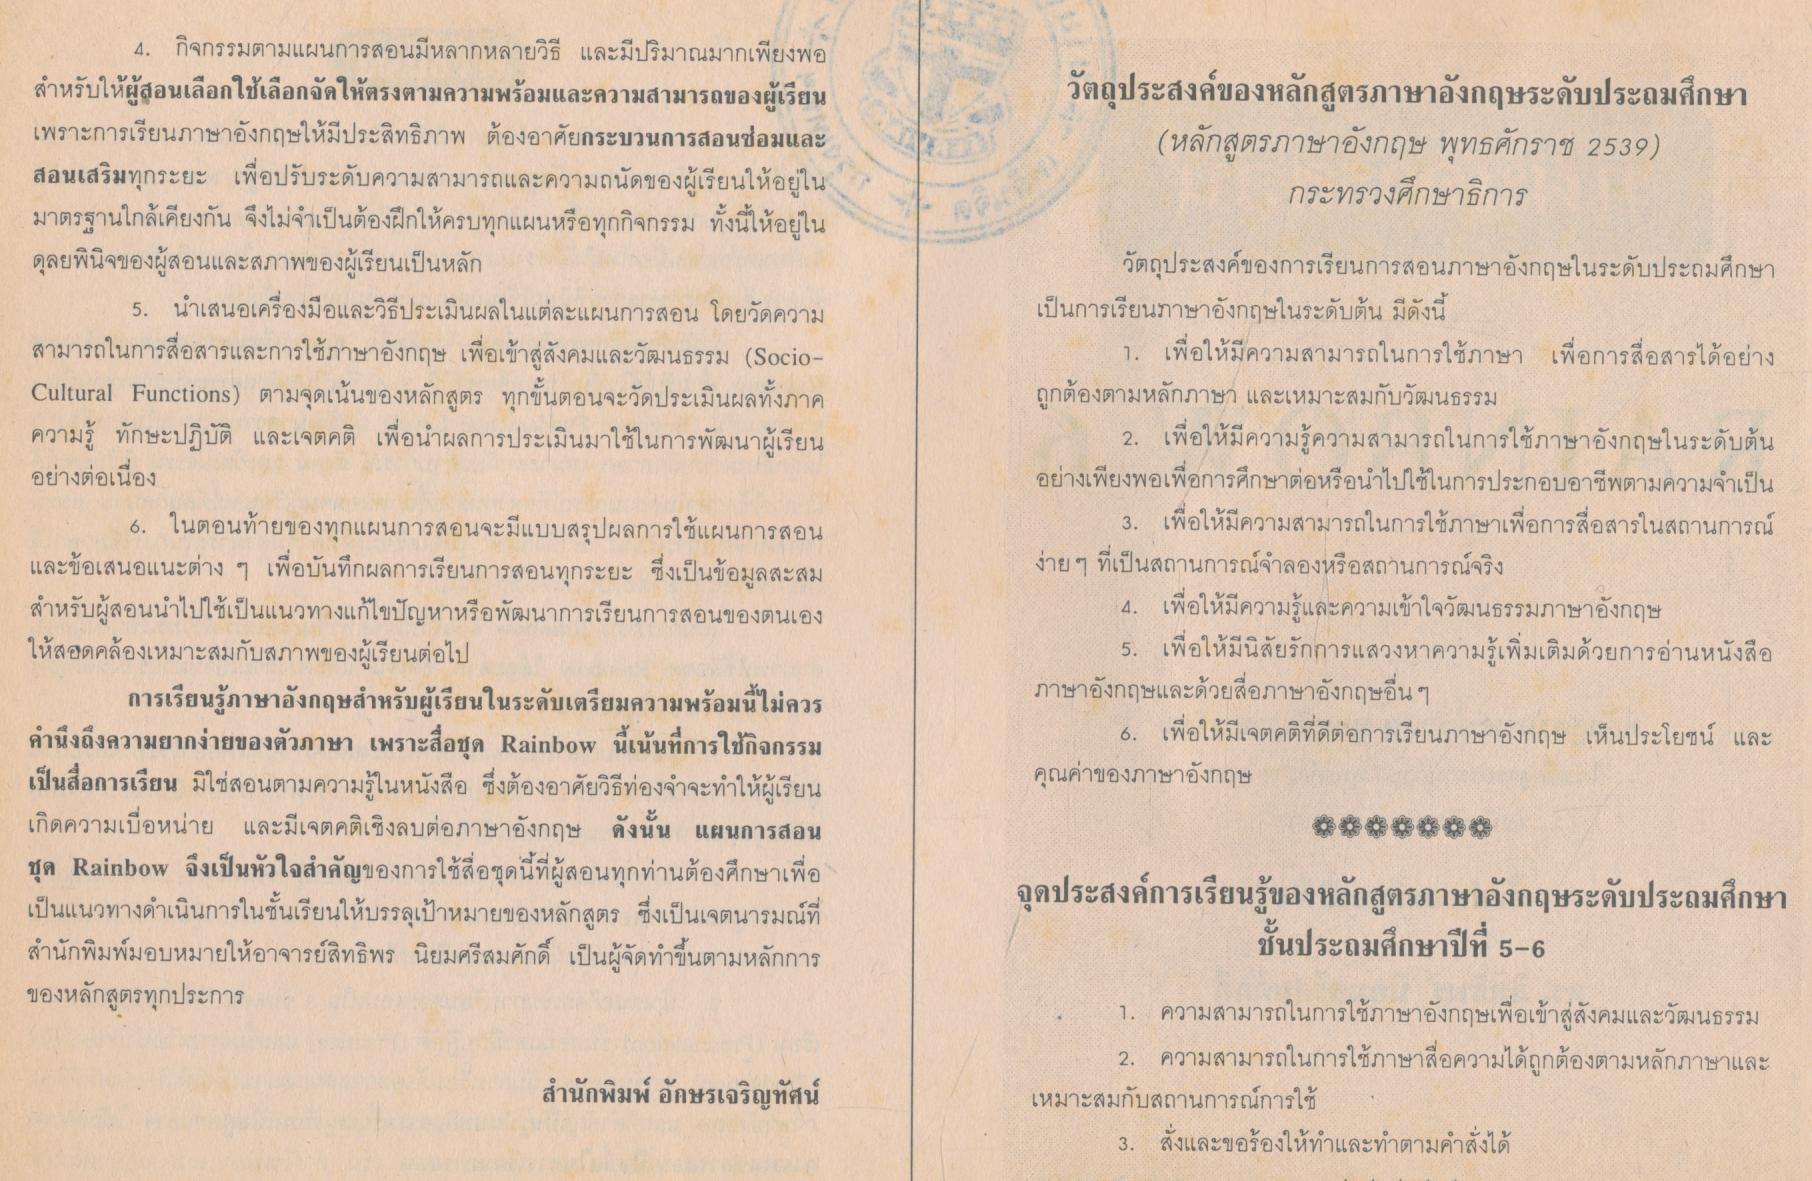 4. กิจกรรมตามแผนการสอนมีหลากหลายวิธี และมีปริมาณมากเพียงพอ
สำหรับให้ผู้สอนเลือกใช้เลือกจัดให้ตรงตามความพร้อมและความสามารถของผู้เรียน
เพราะการเรียนภาษาอังกฤษให้มีประสิทธิภาพ ต้องอาศัยกระบวนการสอนซ่อมและ
สอนเสริมทุกระยะ เพื่อปรับระดับความสามารถและความถนัดของผู้เรียนให้อยู่ใน
มาตรฐานใกล้เคียงกัน จึงไม่จำเป็นต้องฝึกให้ครบทุกแผนหรือทุกกิจกรรม ทั้งนี้ให้อยู่ใน
ดุลยพินิจของผู้สอนและสภาพของผู้เรียนเป็นหลัก
5. นำเสนอเครื่องมือและวิธีประเมินผลในแต่ละแผนการสอน โดยวัดความ
สามารถในการสื่อสารและการใช้ภาษาอังกฤษ เพื่อเข้าสู่สังคมและวัฒนธรรม (Socio-
Cultural Functions) ตามจุดเน้นของหลักสูตร ทุกขั้นตอนจะวัดประเมินผลทั้งภาค
ความรู้ ทักษะปฏิบัติ และเจตคติ เพื่อนำผลการประเมินมาใช้ในการพัฒนาผู้เรียน
อย่างต่อเนื่อง
6. ในตอนท้ายของทุกแผนการสอนจะมีแบบสรุปผลการใช้แผนการสอน
และข้อเสนอแนะต่าง ๆ เพื่อบันทึกผลการเรียนการสอนทุกระยะ ซึ่งเป็นข้อมูลสะสม
สำหรับผู้สอนนำไปใช้เป็นแนวทางแก้ไขปัญหาหรือพัฒนาการเรียนการสอนของตนเอง
ให้สอดคล้องเหมาะสมกับสภาพของผู้เรียนต่อไป
การเรียนรู้ภาษาอังกฤษสำหรับผู้เรียนในระดับเตรียมความพร้อมนี้ไม่ควร
คำนึงถึงความยากง่ายของตัวภาษา เพราะสื่อชุด Rainbow นี้เน้นที่การใช้กิจกรรม
เป็นสื่อการเรียน มิใช่สอนตามความรู้ในหนังสือ ซึ่งต้องอาศัยวิธีท่องจำจะทำให้ผู้เรียน
เกิดความเบื่อหน่าย และมีเจตคติเชิงลบต่อภาษาอังกฤษ ดังนั้น แผนการสอน
ชุด Rainbow จึงเป็นหัวใจสำคัญของการใช้สื่อชุดนี้ที่ผู้สอนทุกท่านต้องศึกษาเพื่อ
เป็นแนวทางดำเนินการในชั้นเรียนให้บรรลุเป้าหมายของหลักสูตร ซึ่งเป็นเจตนารมณ์ที่
สำนักพิมพ์มอบหมายให้อาจารย์สิทธิพร นิยมศรีสมศักดิ์ เป็นผู้จัดทำขึ้นตามหลักการ
ของหลักสูตรทุกประการ
สำนักพิมพ์ อักษรเจริญทัศน์
วัตถุประสงค์ของหลักสูตรภาษาอังกฤษระดับประถมศึกษา
(หลักสูตรภาษาอังกฤษ พุทธศักราช 2539)
กระทรวงศึกษาธิการ
วัตถุประสงค์ของการเรียนการสอนภาษาอังกฤษในระดับประถมศึกษา
เป็นการเรียนภาษาอังกฤษในระดับต้น มีดังนี้
1. เพื่อให้มีความสามารถในการใช้ภาษา เพื่อการสื่อสารได้อย่าง
ถูกต้องตามหลักภาษา และเหมาะสมกับวัฒนธรรม
2. เพื่อให้มีความรู้ความสามารถในการใช้ภาษาอังกฤษในระดับต้น
อย่างเพียงพอเพื่อการศึกษาต่อหรือนำไปใช้ในการประกอบอาชีพตามความจำเป็น
3. เพื่อให้มีความสามารถในการใช้ภาษาเพื่อการสื่อสารในสถานการณ์
ง่าย ๆ ที่เป็นสถานการณ์จำลองหรือสถานการณ์จริง
4. เพื่อให้มีความรู้และความเข้าใจวัฒนธรรมภาษาอังกฤษ
5. เพื่อให้มีนิสัยรักการแสวงหาความรู้เพิ่มเติมด้วยการอ่านหนังสือ
ภาษาอังกฤษและด้วยสื่อภาษาอังกฤษอื่น ๆ
6. เพื่อให้มีเจตคติที่ดีต่อการเรียนภาษาอังกฤษ เห็นประโยชน์ และ
คุณค่าของภาษาอังกฤษ
จุดประสงค์การเรียนรู้ของหลักสูตรภาษาอังกฤษระดับประถมศึกษา
ชั้นประถมศึกษาปีที่ 5-6
1. ความสามารถในการใช้ภาษาอังกฤษเพื่อเข้าสู่สังคมและวัฒนธรรม
2. ความสามารถในการใช้ภาษาสื่อความได้ถูกต้องตามหลักภาษาและ
เหมาะสมกับสถานการณ์การใช้
3. สั่งและขอร้องให้ทำและทำตามคำสั่งได้